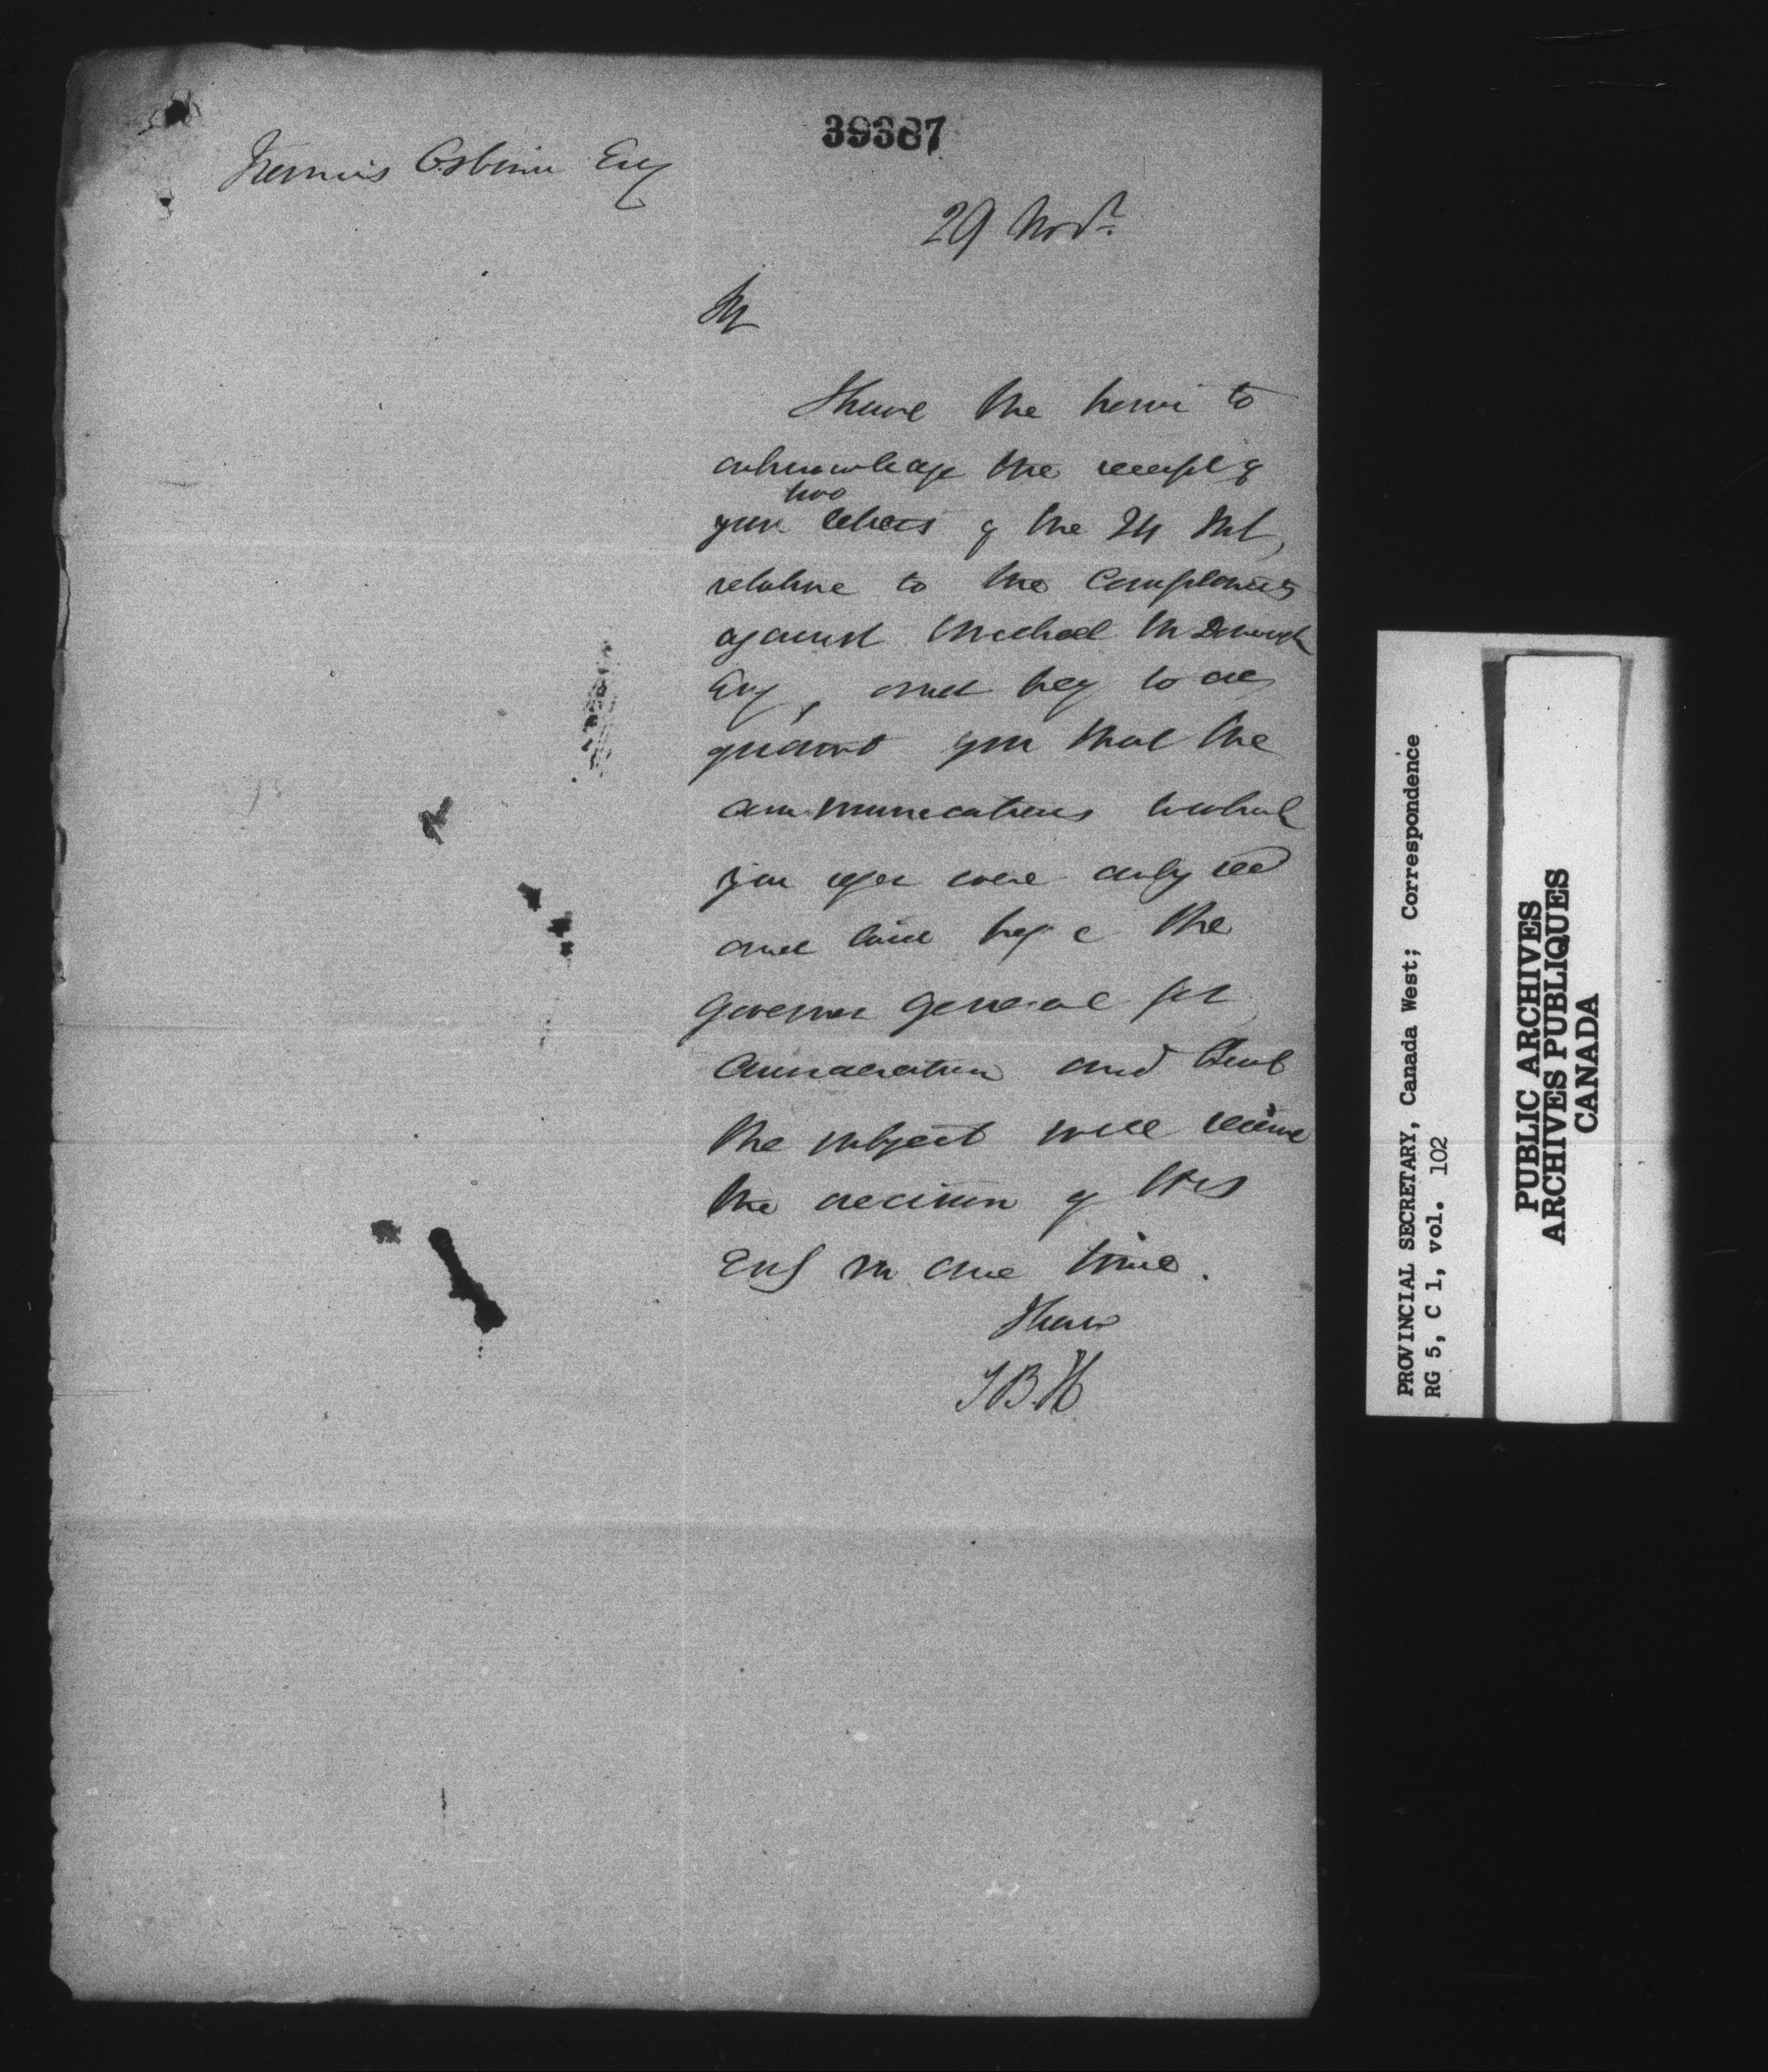 39387
Francis Osborne Esq
29 Novr.
Sir
I have the honor to
acknowledge the receipt of
two
your letters of the 24 Inst,
relative to the Complaints
against Michael McDonough
Esq, and beg to ac
quaint you that the
communications to which
you refer were duly recd
and laid before the
Governor General for
consideration and that
the subject will receive
the decision of His
Excy in due time.
I have
S B. H
PROVINCIAL SECRETARY, Canada West; Correspondence
RG 5, C 1, vol. 102
PUBLIC ARCHIVES
ARCHIVES PUBLIQUES
CANADA